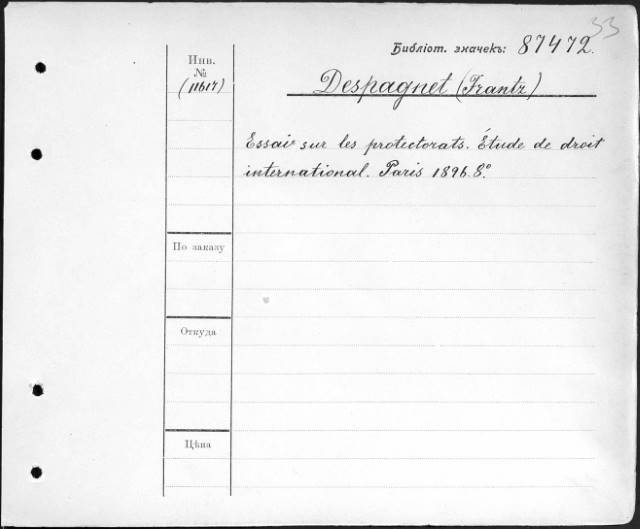 33
Библіот. значекъ: 87472.
Инв.
№
(11617)
Despagnet (Frantz)
Essai sur les protectorats. Étude de droit
international. Paris 1896. 8°.
По заказу
Откуда
Цѣна